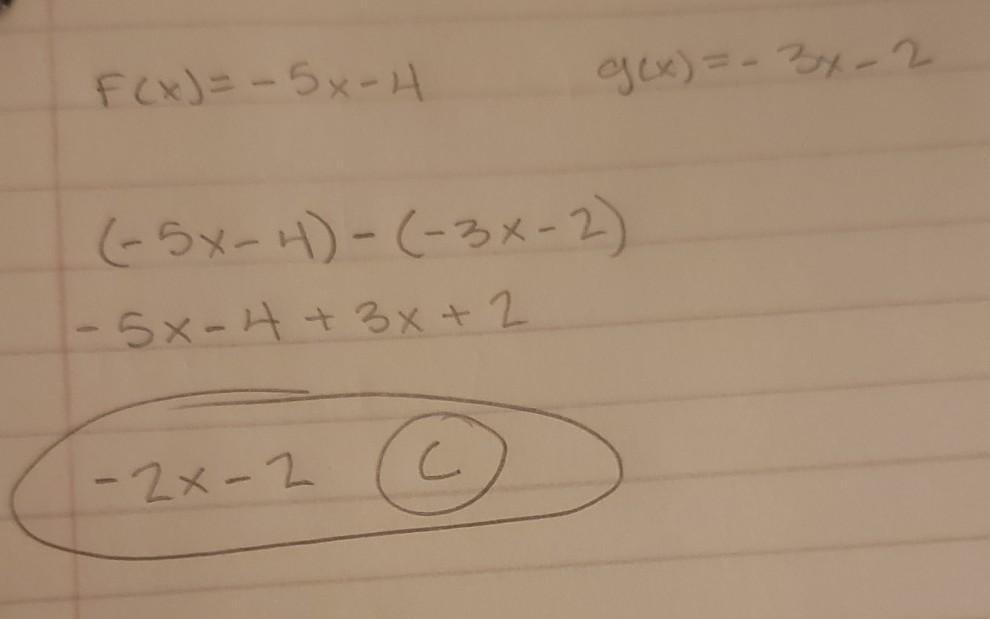 F(x) = -5x-4 g(x) = -3x-2
(-5x-4)-(-3x-2)
-5x-4+3x+2
-2x-2 C